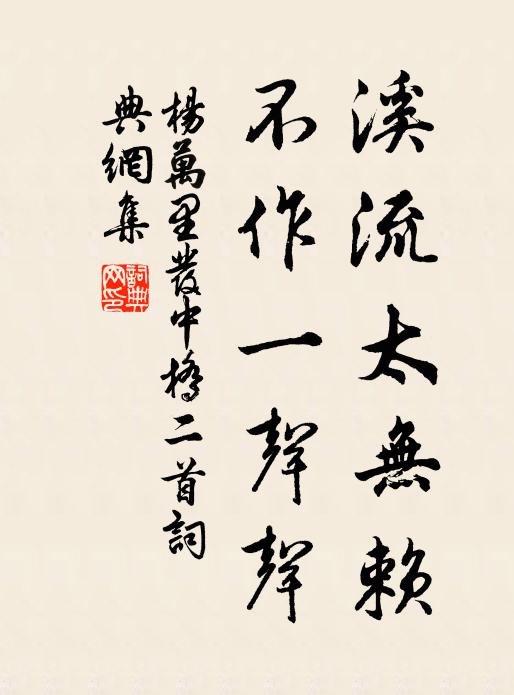 溪流太無賴
不作一聲聲
楊萬里發中橋二首詞
典網集
詞典網印